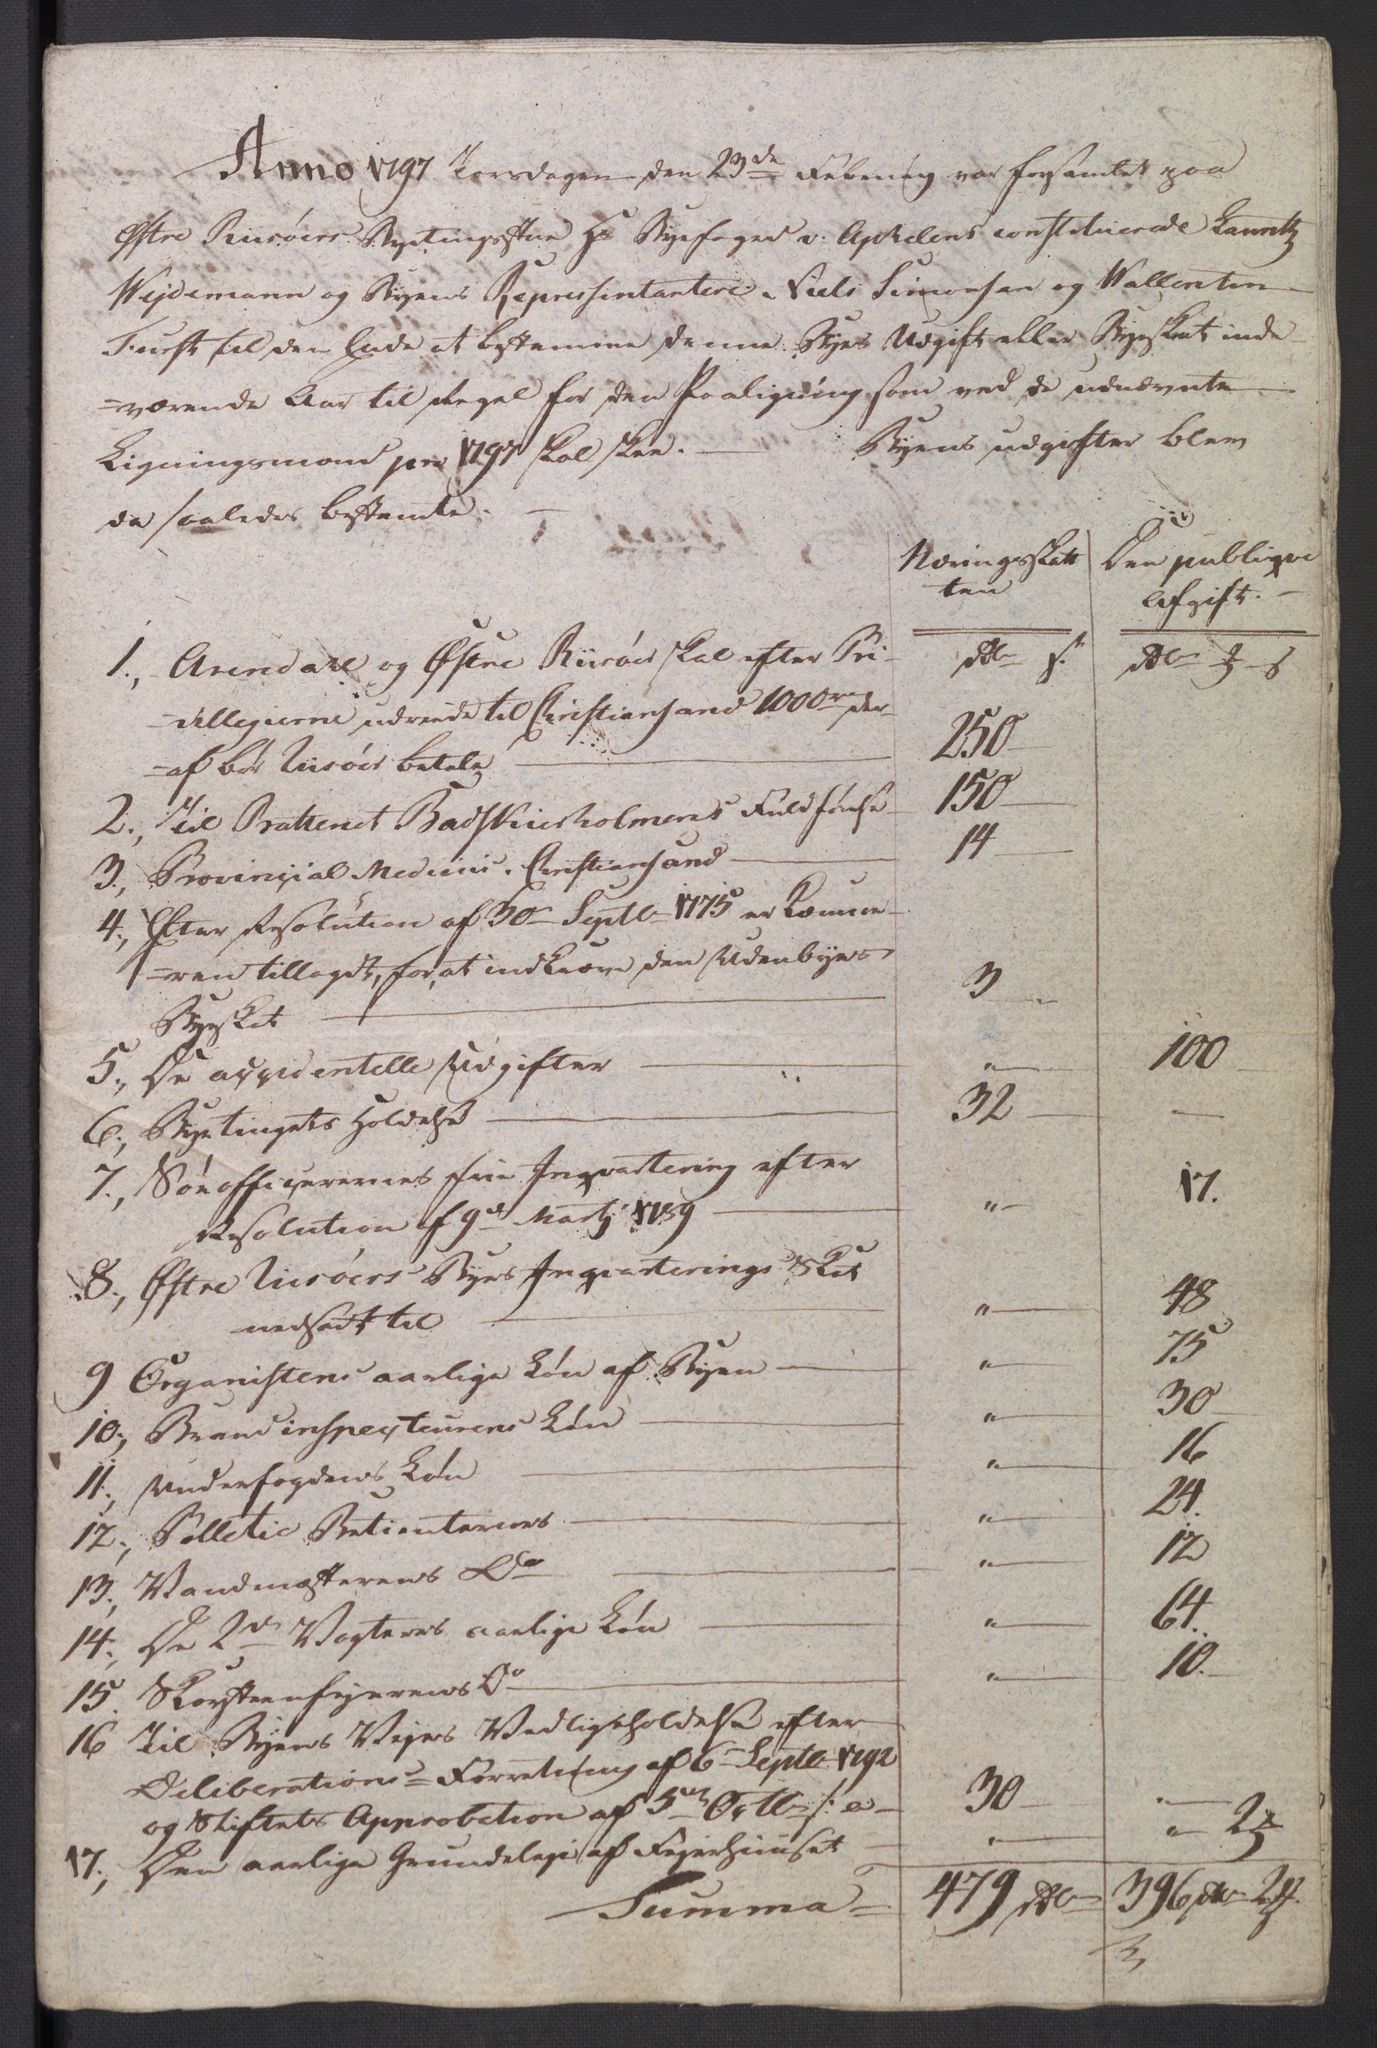 Anno 1797 Torsdagen den 23de Februarij var forsamlet paa
Østre Riisøers Byetingsstue Hr Byefoged v: Aphelens constituerede Lauritz
Weydemann og Byens Repræsentantere Niels Simonsen og Wallentin
Furst til den Ende at bestemme denne Byes Udgift eller Byeskat inde-
=værende Aar til Regel for den Paaligning som ved de udnævnte
Ligningsmænd pro 1797 skal skee. — Byens udgifter blev
da saaledes bestemte. —
Næringsskatt Den publiqve
ten Afgift. —
Rdr s. Rdr # s
1., Arendahl og Østre Riisøer skal efter Pri-
=villegierne udreede til Christiansand 1000rd der-
=af bør Riisøer betale — 250
2., Til Batteriet Holmens Fuldførelse 150 —
3., Provinzial Medicus i Christiansand — 14 —
4., Efter Resolution af 30 Septbr 1775 er Kæmne-
=ren tillagdt, for at indkræve den Udenbyes
Byeskat — 3 —
5., De accidentelle Udgifter — " — 100
6., Byetingets Holdelse — 32 — —
7., Søeofficerernes frie Inqvartering efter
Resolution af 9de Martj 1789 — " — 17.
8., Østre Riisøers Byes Inqvarterings Skat
nedsadt til — " — 48
9 Organistens aarlige Løn af Byen — " — 75
10., Brandinspecteurens Løn — " — 30
11., Underfogdens Løn — " — 16
12., Politie Betienternes — " — 24.
13., Vandmesterens Do — " — 12
14., De 2de Vægteres aarlige Løn — " — 64.
15. Skorsteenfejerens Do — " — 10.
16 Til Byens Vejes Vedligeholdelse efter
Deliberations=Forretning af 6 Septbr 1792
og Stiftets Approbation af 5te Octbr s: a — 30 — " —
17., Den aarlige Grundeleje af Fejerhuuset — " — " 2#
Summa = 479 Rdr 396 Rdr 2#.